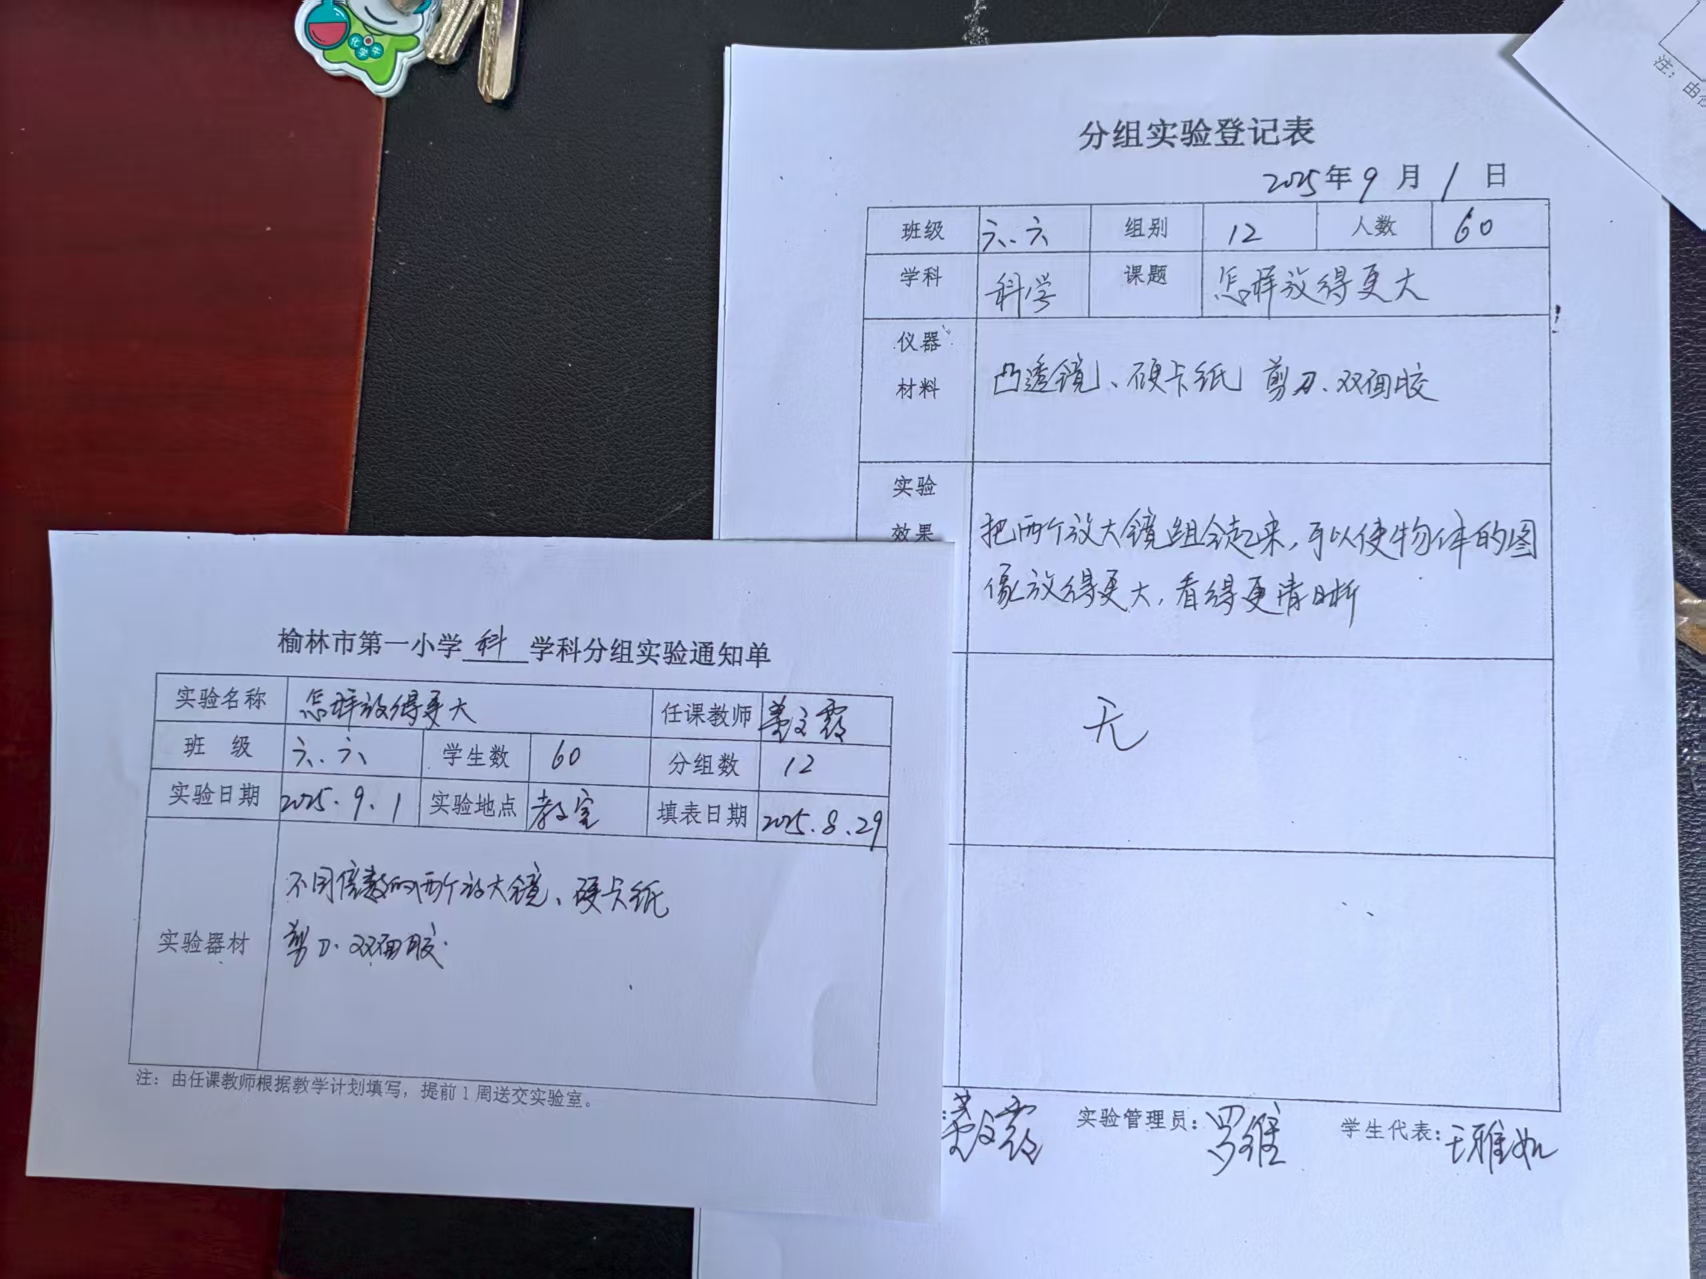 化学牛
注：
由任
分组实验登记表
2025年9月1日
班级 六.六 组别 12 人数 60
学科 科学 课题 怎样放得更大
仪器
材料
凸透镜、硬卡纸 剪刀、双面胶
实验
效果
把两个放大镜组合起来，可以使物体的图
像放得更大，看得更清晰
无
实验管理员：罗维 学生代表：王雅如
榆林市第一小学 科 学科分组实验通知单
实验名称 怎样放得更大 任课教师
班 级 六.六 学生数 60 分组数 12
实验日期 2025.9.1 实验地点 教室 填表日期 2025.8.29
实验器材
不同倍数的两个放大镜、硬卡纸
剪刀.双面胶.
注：由任课教师根据教学计划填写，提前1周送交实验室。